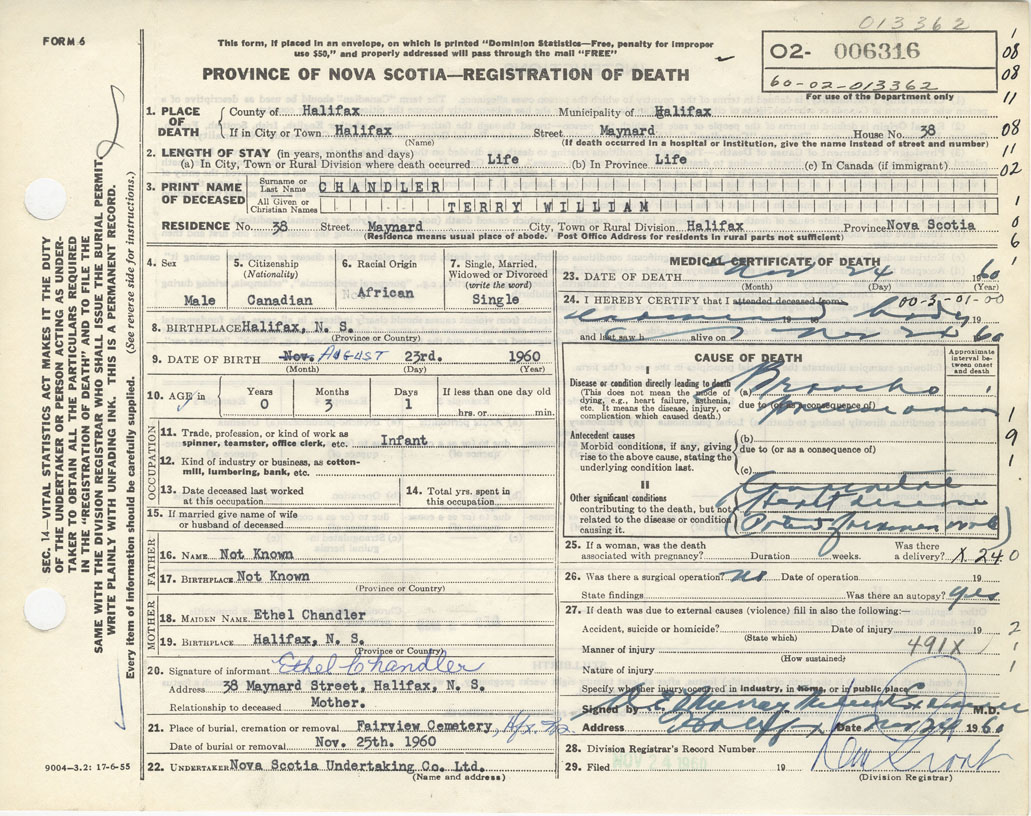 013362
FORM 6
This form, if placed in an envelope, on which is printed "Dominion Statistics—Free, penalty for improper
use $50," and properly addressed will pass through the mail "FREE"
02- 006316
60-02-013362
For use of the Department only
PROVINCE OF NOVA SCOTIA—REGISTRATION OF DEATH
1. PLACE OF DEATH
County of Halifax Municipality of Halifax
If in City or Town Halifax Street Maynard House No. 38
(Name) (If death occurred in a hospital or institution, give the name instead of street and number)
2. LENGTH OF STAY (in years, months and days)
(a) In City, Town or Rural Division where death occurred Life (b) In Province Life (c) In Canada (if immigrant)
3. PRINT NAME OF DECEASED
Surname or Last Name CHANDLER
All Given or Christian Names TERRY WILLIAM
RESIDENCE No. 38 Street Maynard City, Town or Rural Division Halifax Province Nova Scotia
(Residence means usual place of abode. Post Office Address for residents in rural parts not sufficient)
4. Sex Male
5. Citizenship (Nationality) Canadian
6. Racial Origin African
7. Single, Married, Widowed or Divorced (write the word) Single
8. BIRTHPLACE Halifax, N. S.
(Province or Country)
9. DATE OF BIRTH Nov. AUGUST 23rd. 1960
(Month) (Day) (Year)
10. AGE in Years 0 Months 3 Days 1 If less than one day old hrs. or min.
OCCUPATION
11. Trade, profession, or kind of work as spinner, teamster, office clerk, etc. Infant
12. Kind of industry or business, as cotton-mill, lumbering, bank, etc.
13. Date deceased last worked at this occupation
14. Total yrs. spent in this occupation
15. If married give name of wife or husband of deceased
FATHER
16. NAME Not Known
17. BIRTHPLACE Not Known
(Province or Country)
MOTHER
18. MAIDEN NAME Ethel Chandler
19. BIRTHPLACE Halifax, N. S.
(Province or Country)
20. Signature of informant Ethel Chandler
Address 38 Maynard Street, Halifax, N. S.
Relationship to deceased Mother.
21. Place of burial, cremation or removal Fairview Cemetery, Hfx. N.S.
Date of burial or removal Nov. 25th. 1960
22. UNDERTAKER Nova Scotia Undertaking Co. Ltd.
(Name and address)
MEDICAL CERTIFICATE OF DEATH
23. DATE OF DEATH Nov 24 1960
(Month) (Day) (Year)
24. I HEREBY CERTIFY that I attended deceased from 00-3-01-00
examined body 19
and last saw h alive on Nov 24 60
CAUSE OF DEATH
Approximate interval between onset and death
I
Disease or condition directly leading to death
(This does not mean the mode of dying, e.g., heart failure, asthenia, etc. It means the disease, injury, or complication which caused death.)
(a) Broncho Pneumonia
due to (or as a consequence of)
Antecedent causes
Morbid conditions, if any, giving rise to the above cause, stating the underlying condition last.
(b)
due to (or as a consequence of)
(c)
II
Other significant conditions contributing to the death, but not related to the disease or condition causing it.
Congenital
Heart disease
(Patent foramen ovale)
25. If a woman, was the death associated with pregnancy? Duration weeks. Was there a delivery? X 240
26. Was there a surgical operation? no Date of operation 19
State findings Was there an autopsy? yes
27. If death was due to external causes (violence) fill in also the following:—
Accident, suicide or homicide? Date of injury 19
(State which)
Manner of injury 491X
(How sustained)
Nature of injury
Specify whether injury occurred in industry, in home, or in public place
Signed by M.D.
Address Halifax Date Nov 24 1960
28. Division Registrar's Record Number
29. Filed NOV 24 1960 19
(Division Registrar)
SEC. 14—VITAL STATISTICS ACT MAKES IT THE DUTY
OF THE UNDERTAKER OR PERSON ACTING AS UNDER-
TAKER TO OBTAIN ALL THE PARTICULARS REQUIRED
IN THE "REGISTRATION OF DEATH" AND TO FILE THE
SAME WITH THE DIVISION REGISTRAR WHO SHALL ISSUE THE BURIAL PERMIT.
WRITE PLAINLY WITH UNFADING INK. THIS IS A PERMANENT RECORD.
Every item of information should be carefully supplied. (See reverse side for instructions.)
9004—3.2: 17-6-55
1
08
08
11
08
11
02
1
0
6
1
1
1
9
1
2
1
1